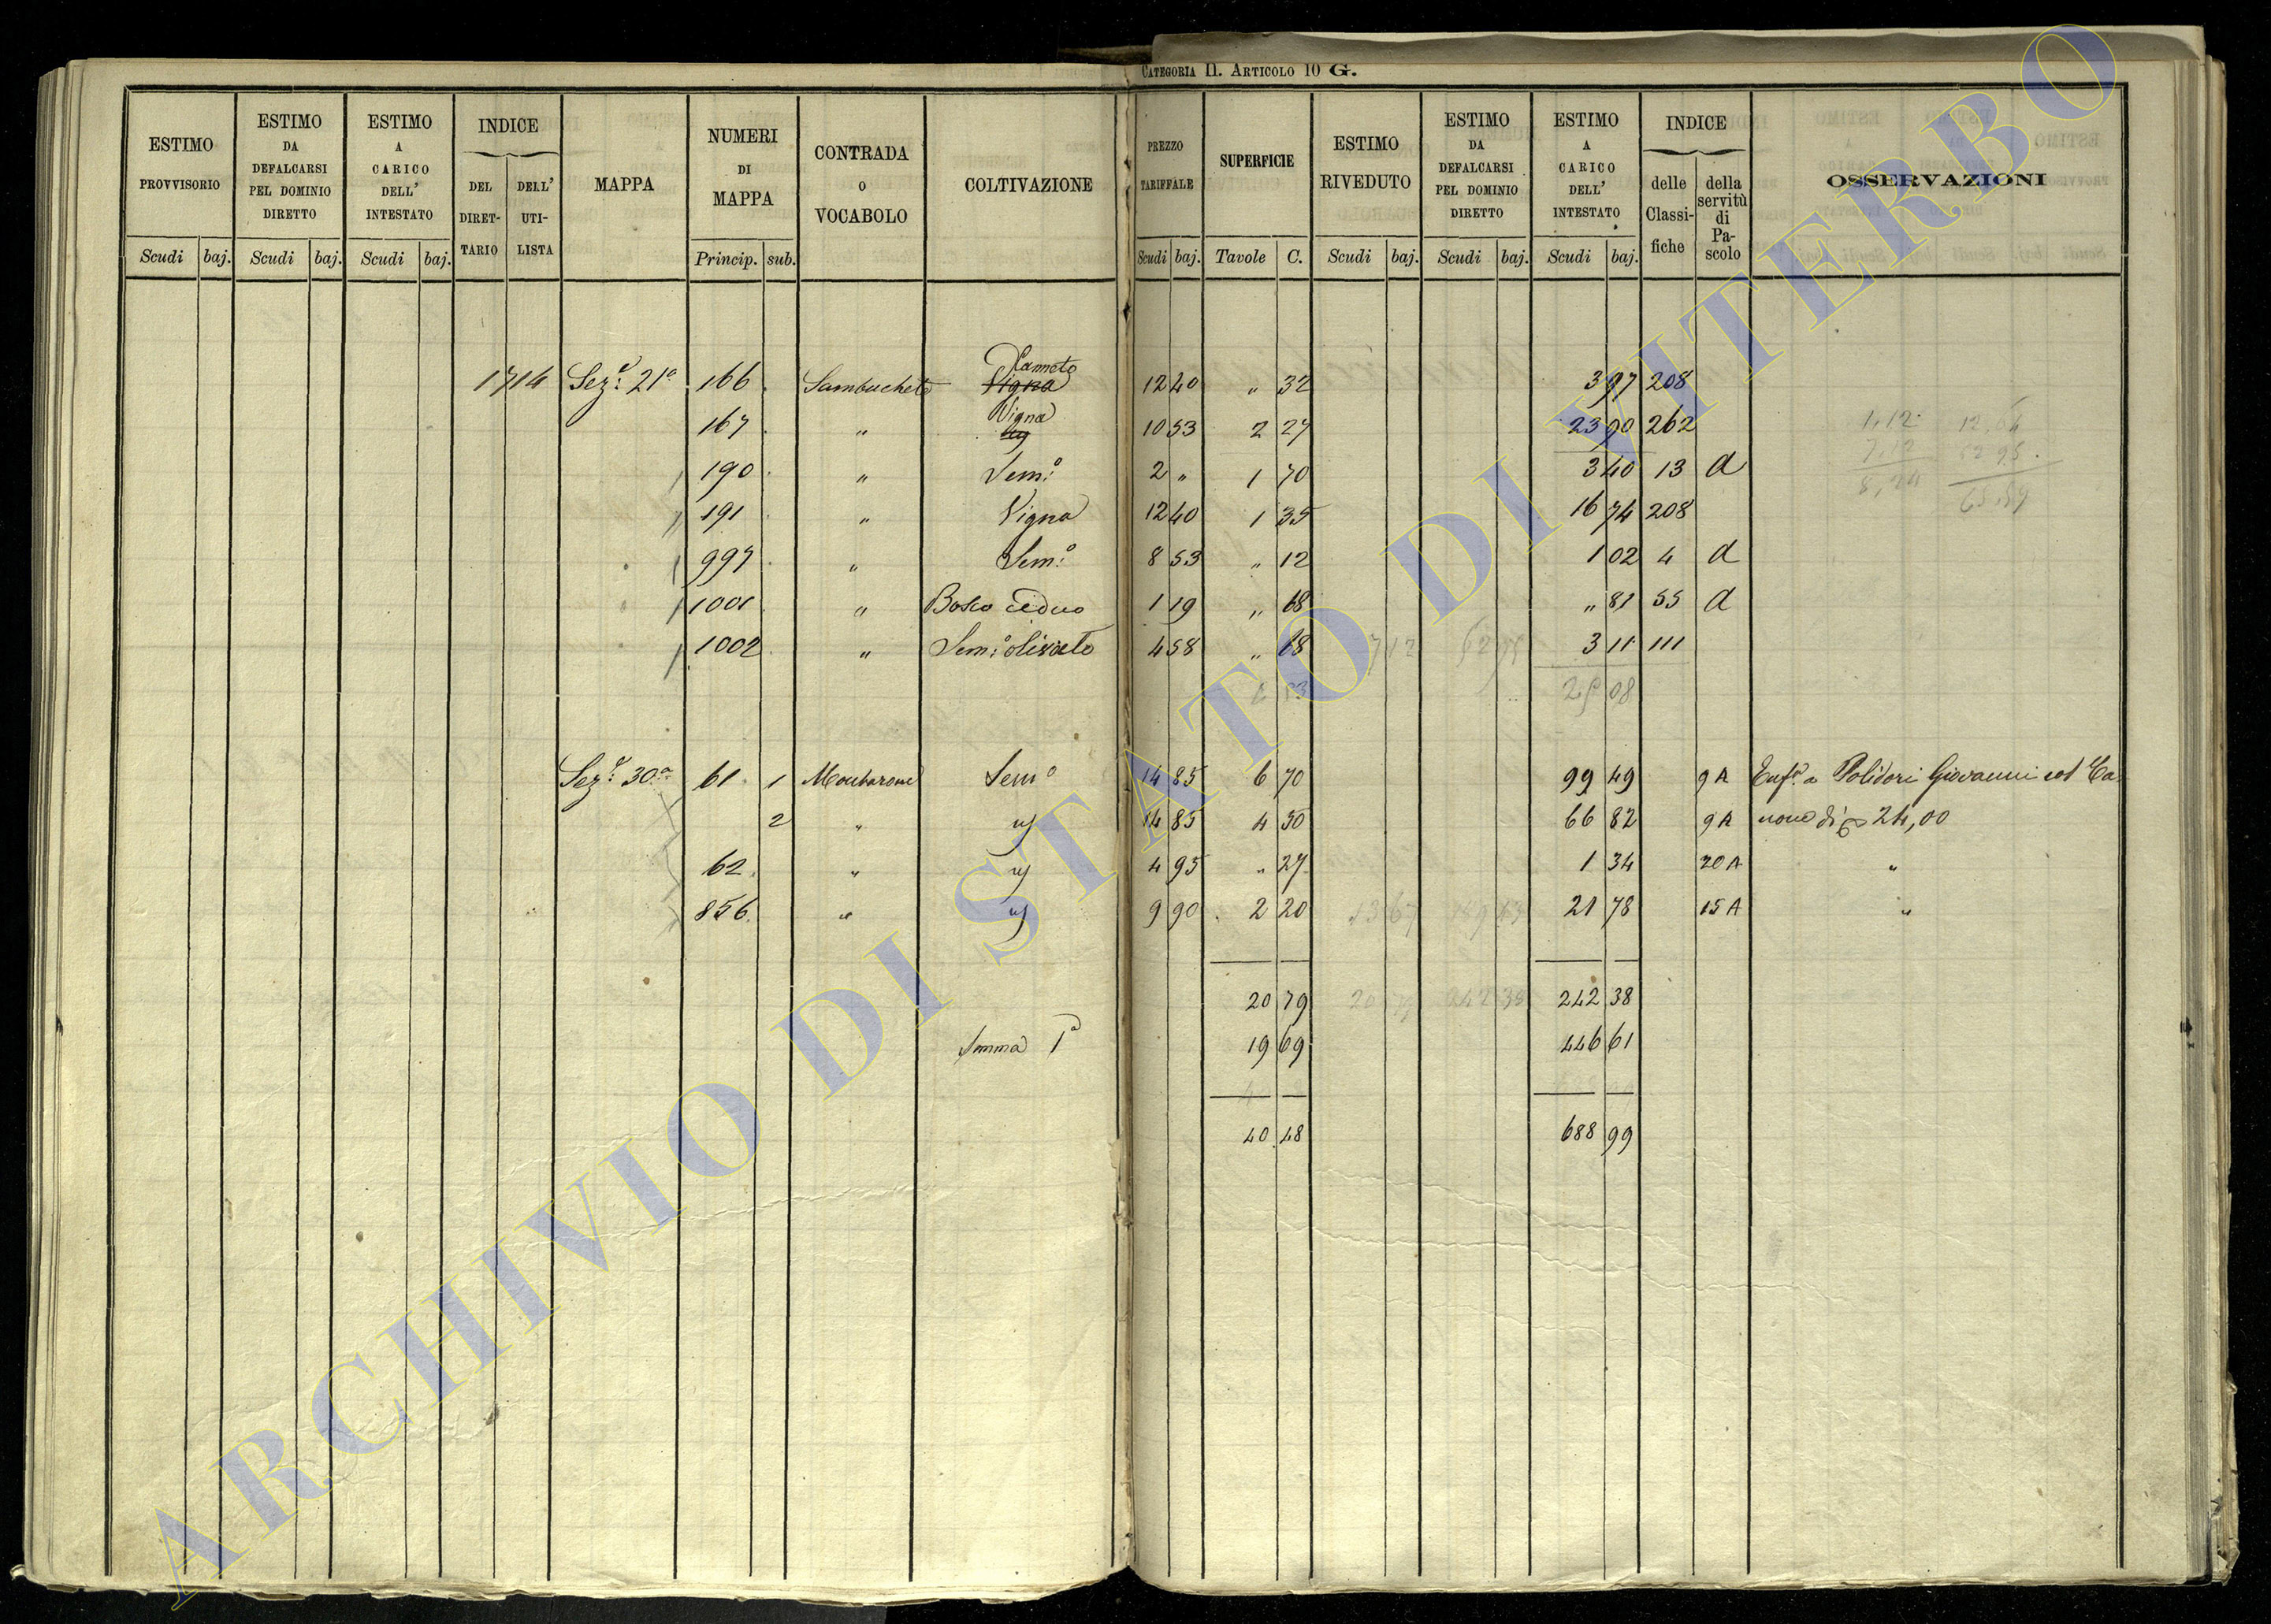 CATEGORIA II. ARTICOLO 10 G.
ESTIMO PROVVISORIO Scudi baj. ESTIMO DA DEFALCARSI PEL DOMINIO DIRETTO Scudi baj. ESTIMO A CARICO DELL' INTESTATO Scudi baj. INDICE DEL DIRET- TARIO DELL' UTI- LISTA MAPPA NUMERI DI MAPPA Princip. sub. CONTRADA O VOCABOLO COLTIVAZIONE PREZZO TARIFFALE Scudi baj. SUPERFICIE Tavole C. ESTIMO RIVEDUTO Scudi baj. ESTIMO DA DEFALCARSI PEL DOMINIO DIRETTO Scudi baj. ESTIMO A CARICO DELL' INTESTATO Scudi baj. INDICE delle Classi- fiche della servitù di Pa- scolo OSSERVAZIONI
Canneto
1714 Sez.e 21a 166 Sambucheto Vigna 12 40 " 32 3 97 208
Vigna
167 " 10 53 2 27 23 90 262
190 " Sem:o 2 " 1 70 3 40 13 d
191 " Vigna 12 40 1 35 16 74 208
997 " Sem:o 8 53 " 12 1 02 4 d
1001 " Bosco ceduo 1 19 " 68 " 81 55 d
1002 " Sem:o olivato 4 58 " 68 7 12 52 95 3 11 111
25 08
1,12 12,64
7,12 52 95
8,24 65,59
Sez.e 30a 61 1 Montarone Sem.o 14 85 6 70 99 49 9 A Enf.a a Polidori Giovanni col Ca-
2 " 14 85 4 50 66 82 9 A none di 24,00
62 " 4 95 " 27 1 34 20 A "
856 " 9 90 2 20 13 67 189 43 21 78 15 A "
20 79 20 79 242 38 242 38
Somma 1a 19 69 446 61
40 48 688 99
ARCHIVIO DI STATO DI VITERBO